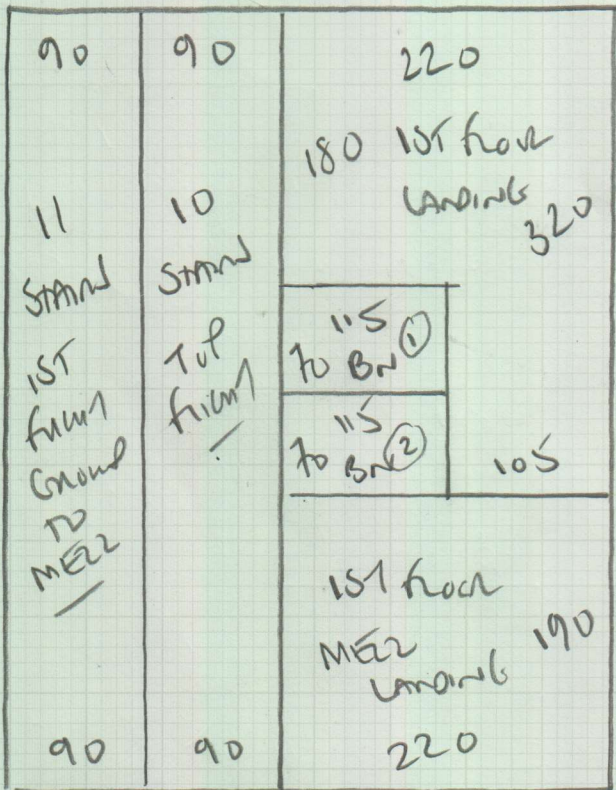 90
11
STAIRS
1ST
FLIGHT
GROUND
TO
MEZZ
90
90
10
STAIRS
TOP
FLIGHT
90
220
180 1ST FLOOR
LANDING
320
115
70 BN ①
115
70 BN ②
105
1ST FLOOR
MEZZ 190
LANDING
220